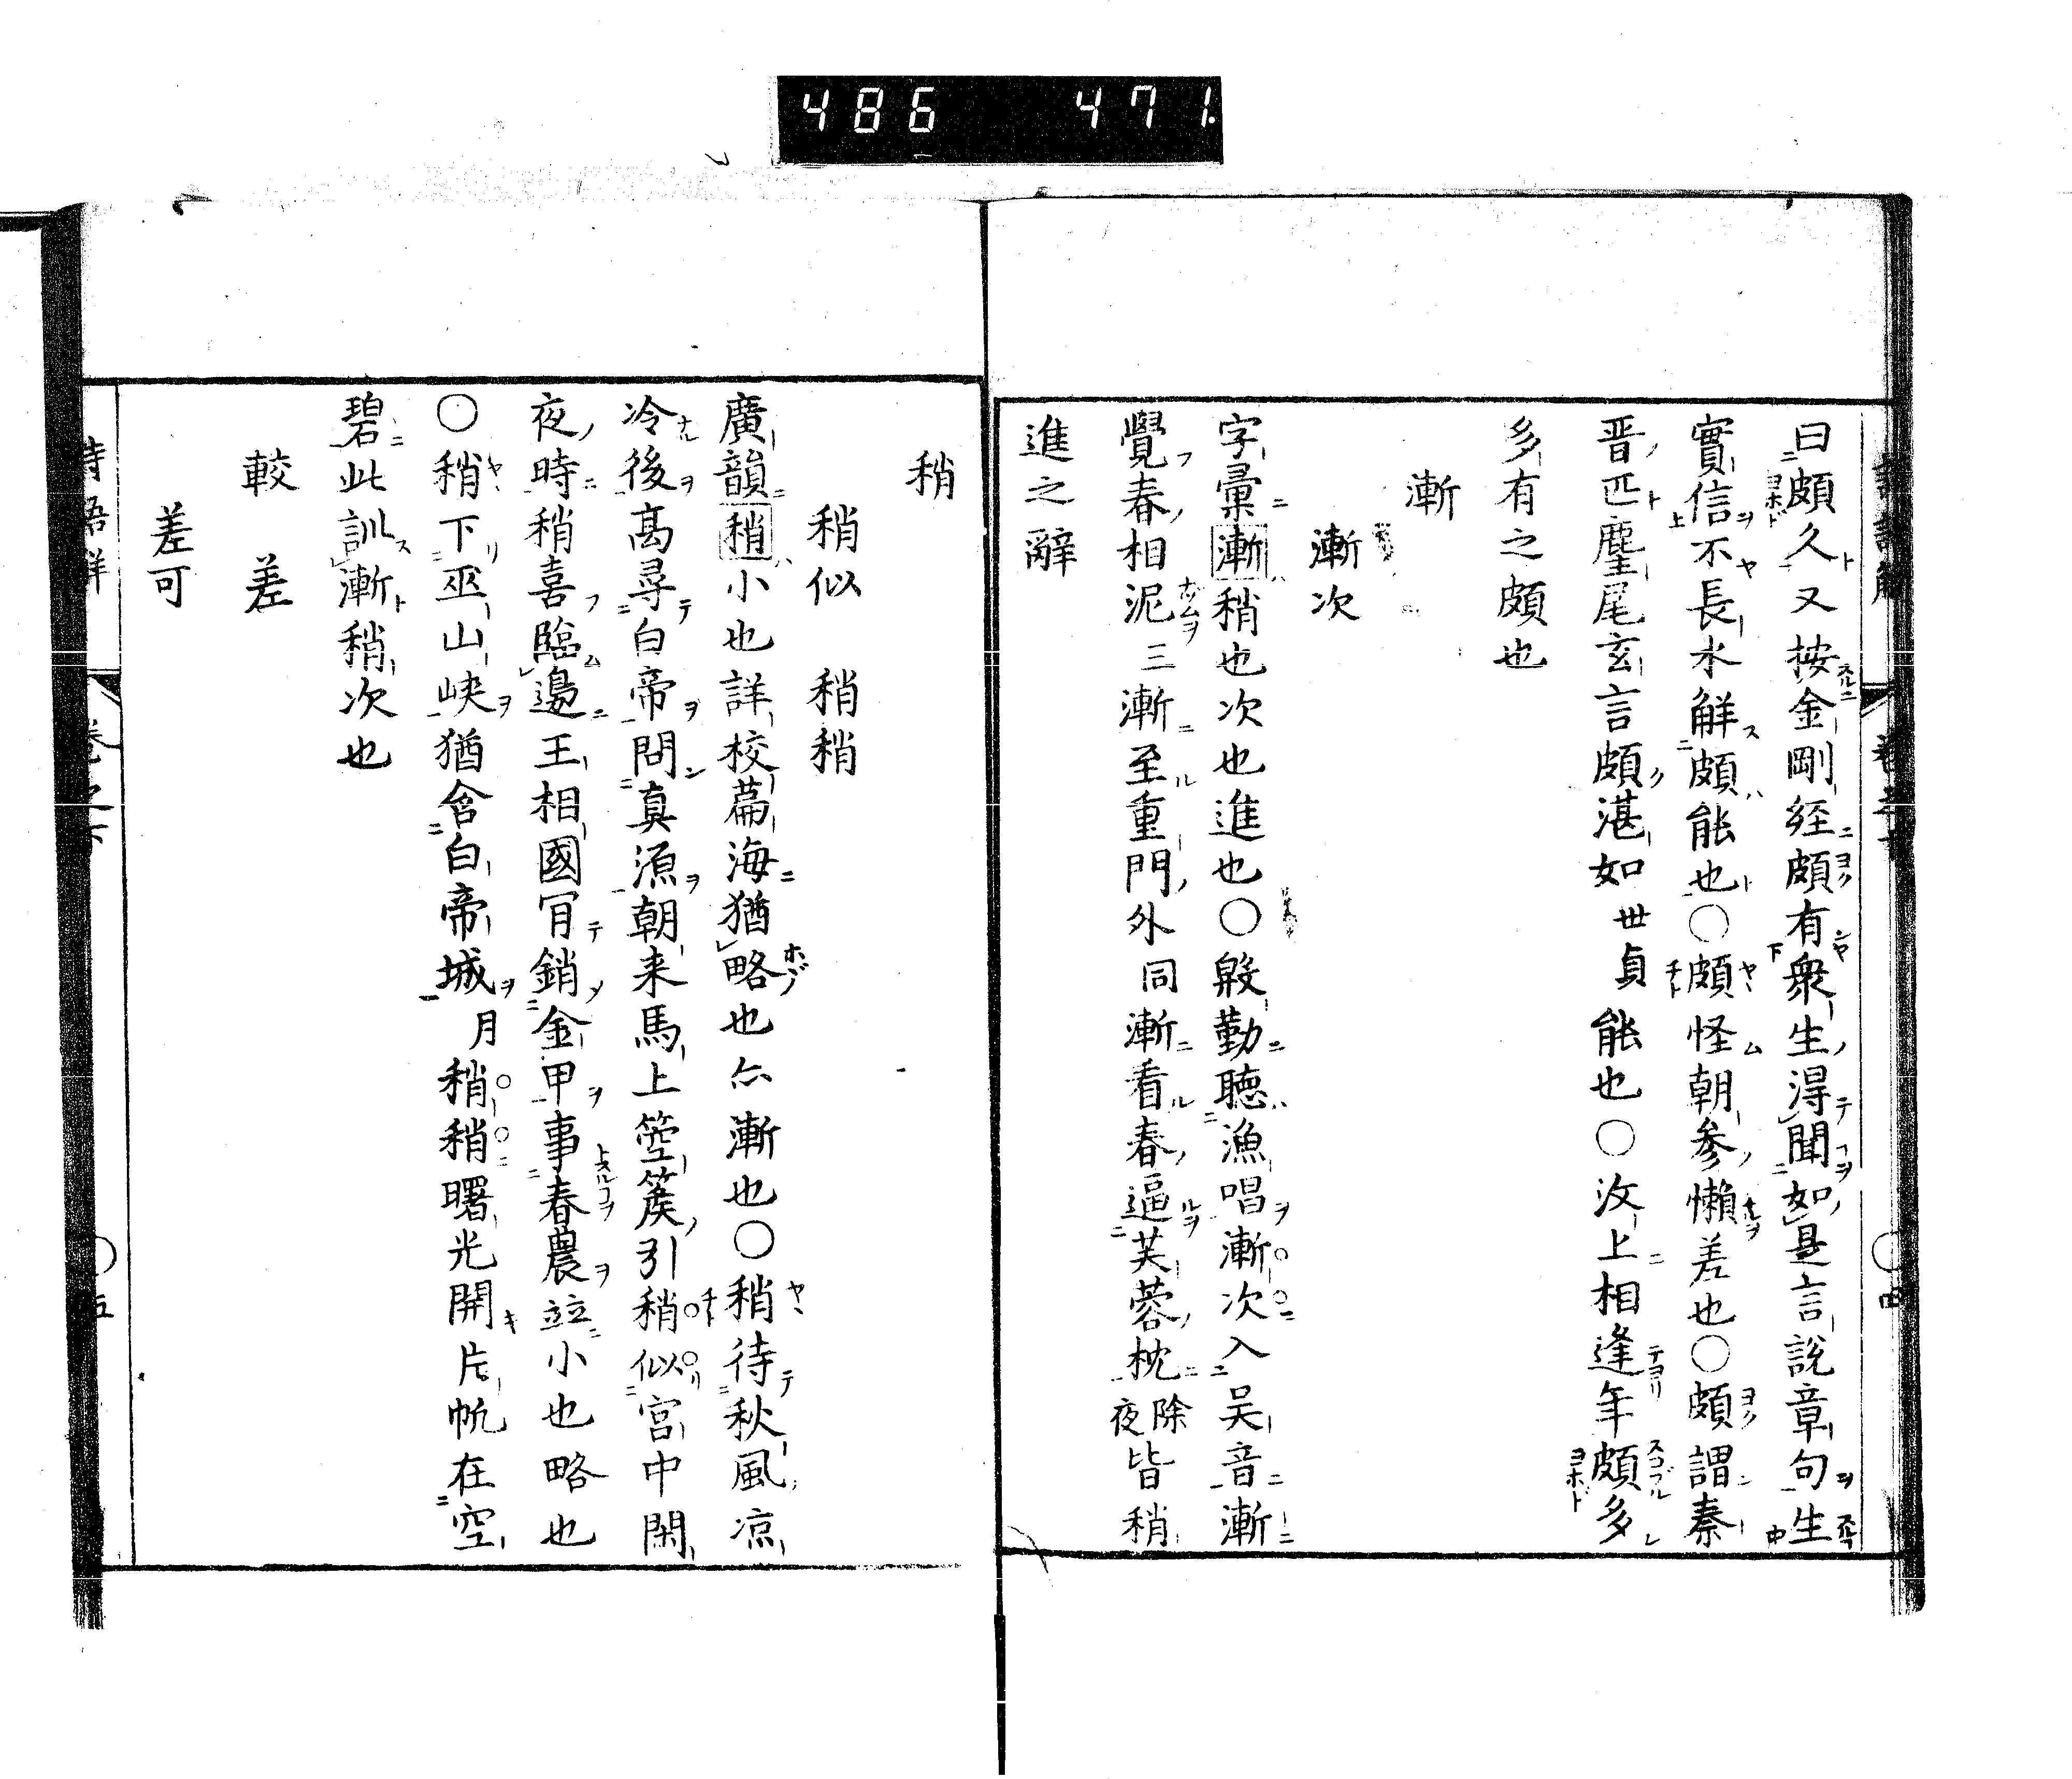 486 471
曰頗久又按金剛経頗有衆生淂聞如是言說章句生
實信不長水觧頗能也○頗怪朝参懶差也○頗謂秦
晋匹麈尾玄言頗湛如世貞能也○汶上相逢年頗多
多有之頗也
漸
漸次
字彙漸稍也次也進也○殷勤聴漁唱漸次入吴音漸
覺春相泥三漸至重門外同漸看春逼芙蓉枕除夜皆稍
進之辭
稍
稍似 稍稍
廣韻稍小也詳校萹海猶略也亦漸也○稍待秋風凉
冷後髙尋白帝問真源朝来馬上箜篌引稍似宮中閑
夜時稍喜臨邊王相國肎銷金甲事春農竝小也略也
○稍下巫山峽猶含白帝城月稍稍曙光開片帆在空
碧此訓漸稍次也
較 差
差可